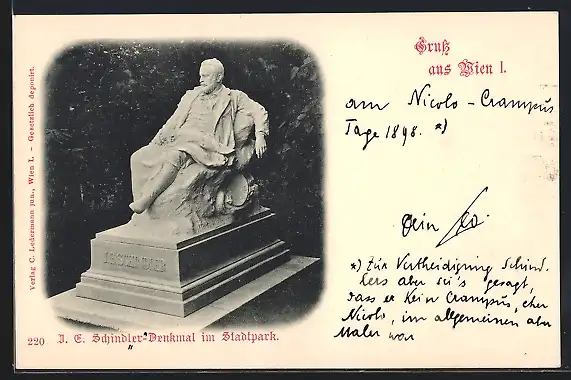 Gruß
aus Wien I.
am Nicolo-Crampus
Tage 1898. *)
Dein Leo.
*) Zur Vertheidigung Schind.
lers aber sei's gesagt,
dass er kein Crampus, eher
Nicolo, im allgemeinen aber
Maler war
J.E. SCHINDLER
220 J. E. Schindler-Denkmal im Stadtpark.
Verlag C. Ledermann jun., Wien I. – Gesetzlich deponirt.